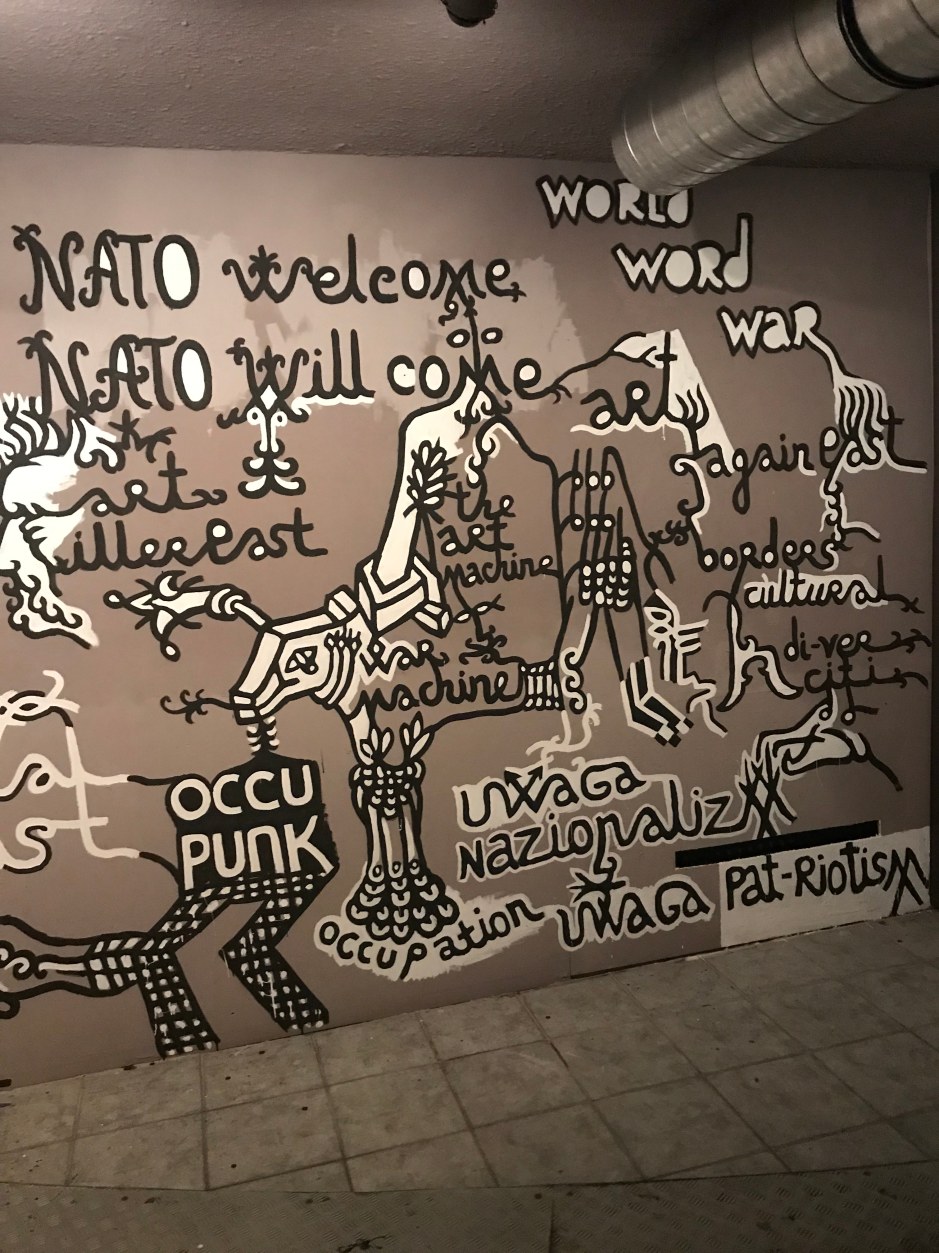 WORLD
WORD
WAR
NATO welcome
NATO will come
art
again east
art
illereast
the
art
machine
borders
cultural
di-ver
citi
war
machine
at
st
OCCU
PUNK
UWAGA
NAZIONALIZM
occupation
UWAGA
PAT-RIOTISM